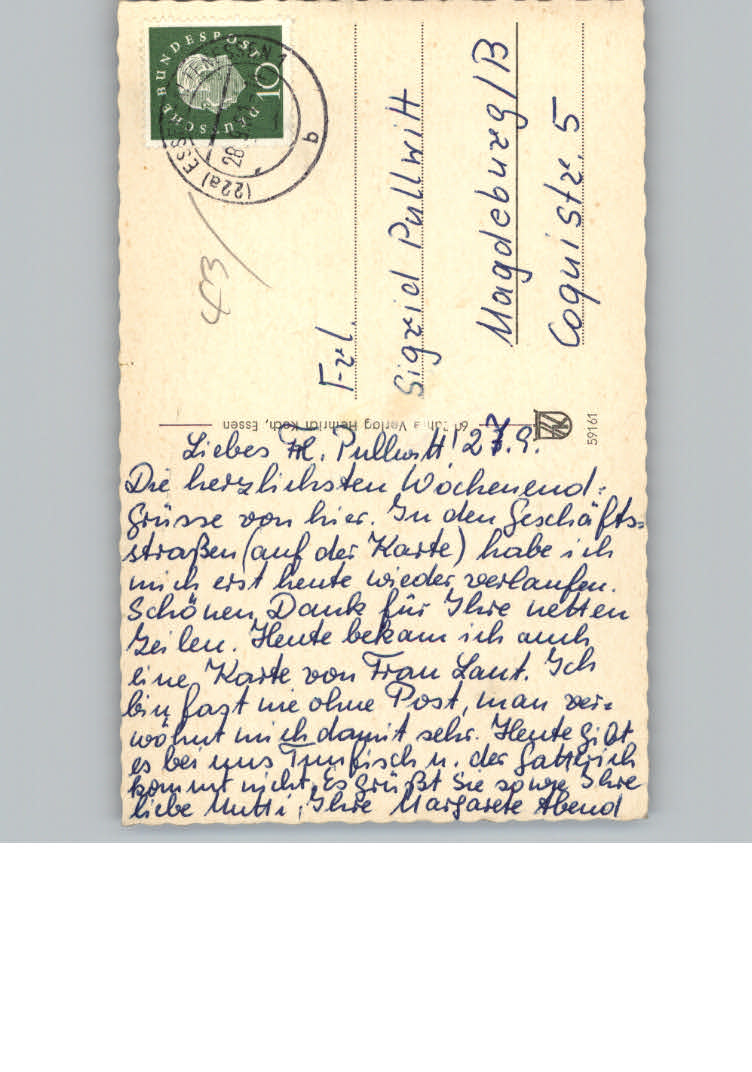 DEUTSCHE BUNDESPOST
10
(22a) ESSEN
28.
b
43
Frl.
Sigrid Pullwitt
Magdeburg/B
Coquistr. 5
Verlag Heinrich Koch, Essen
59161
Liebes Frl. Pullwitt! 27.9.
Die herzlichsten Wochenend=
grüsse von hier. In den Geschäfts=
straßen (auf der Karte) habe ich
mich erst heute wieder verlaufen.
Schönen Dank für Ihre netten
Zeilen. Heute bekam ich auch
eine Karte von Frau Laut. Ich
bin fast nie ohne Post, man ver=
wöhnt mich damit sehr. Heute gibt
es bei uns Tunfisch u. der Gatterich
kommt nicht. Es grüßt Sie sowie Ihre
liebe Mutti, Ihre Margarete Abend